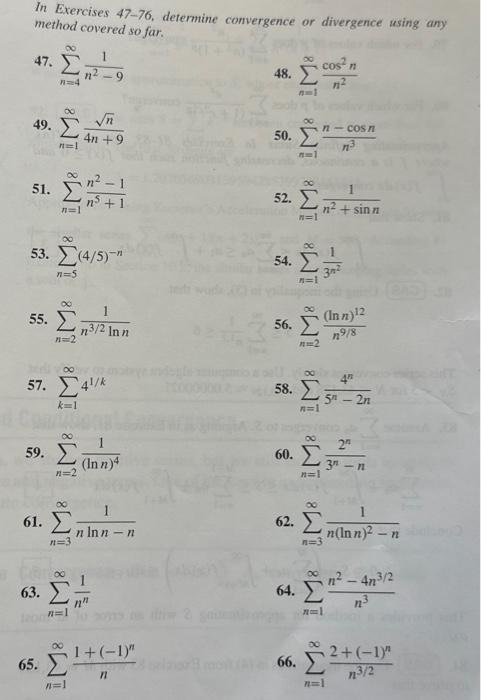 In Exercises 47–76, determine convergence or divergence using any
method covered so far.
47. \sum_{n=4}^{\infty} \frac{1}{n^2 - 9}
48. \sum_{n=1}^{\infty} \frac{\cos^2 n}{n^2}
49. \sum_{n=1}^{\infty} \frac{\sqrt{n}}{4n + 9}
50. \sum_{n=1}^{\infty} \frac{n - \cos n}{n^3}
51. \sum_{n=1}^{\infty} \frac{n^2 - 1}{n^5 + 1}
52. \sum_{n=1}^{\infty} \frac{1}{n^2 + \sin n}
53. \sum_{n=5}^{\infty} (4/5)^{-n}
54. \sum_{n=1}^{\infty} \frac{1}{3^{n^2}}
55. \sum_{n=2}^{\infty} \frac{1}{n^{3/2} \ln n}
56. \sum_{n=2}^{\infty} \frac{(\ln n)^{12}}{n^{9/8}}
57. \sum_{k=1}^{\infty} 4^{1/k}
58. \sum_{n=1}^{\infty} \frac{4^n}{5^n - 2n}
59. \sum_{n=2}^{\infty} \frac{1}{(\ln n)^4}
60. \sum_{n=1}^{\infty} \frac{2^n}{3^n - n}
61. \sum_{n=3}^{\infty} \frac{1}{n \ln n - n}
62. \sum_{n=3}^{\infty} \frac{1}{n(\ln n)^2 - n}
63. \sum_{n=1}^{\infty} \frac{1}{n^n}
64. \sum_{n=1}^{\infty} \frac{n^2 - 4n^{3/2}}{n^3}
65. \sum_{n=1}^{\infty} \frac{1 + (-1)^n}{n}
66. \sum_{n=1}^{\infty} \frac{2 + (-1)^n}{n^{3/2}}